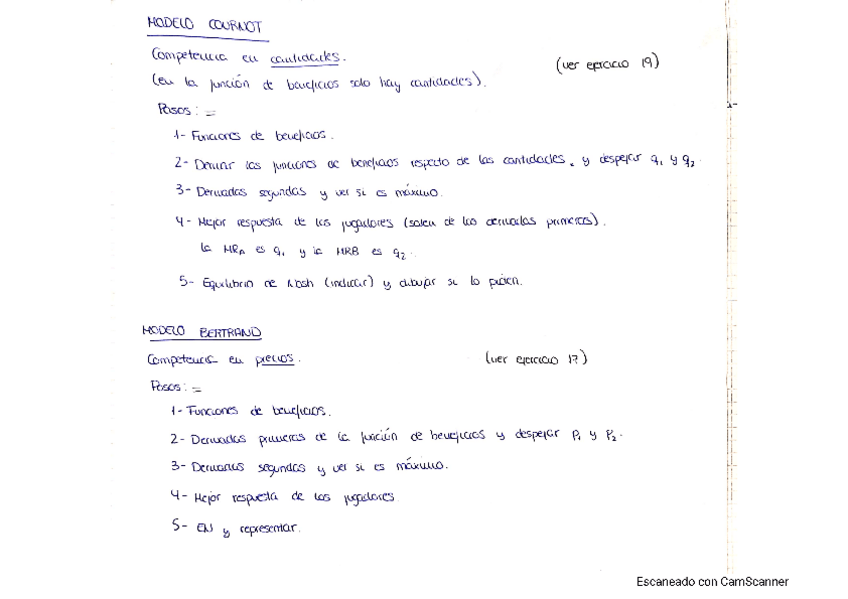 MODELO COURNOT
Competencia en cantidades.
(ver ejercicio 19)
(en la función de beneficios solo hay cantidades).
Pasos: =
1- Funciones de beneficios.
2- Derivar las funciones de beneficios respecto de las cantidades, y despejar q1 y q2.
3- Derivadas segundas y ver si es máximo.
4- Mejor respuesta de los jugadores (salen de las derivadas primeras).
la MRA es q1 y la MRB es q2.
5- Equilibrio de Nash (indicar) y dibujar si lo piden.
MODELO BERTRAND
Competencia en precios.
(ver ejercicio 17)
Pasos: =
1- Funciones de beneficios.
2- Derivadas primeras de la función de beneficios y despejar P1 y P2.
3- Derivadas segundas y ver si es máximo.
4- Mejor respuesta de los jugadores
5- EN y representar.
Escaneado con CamScanner